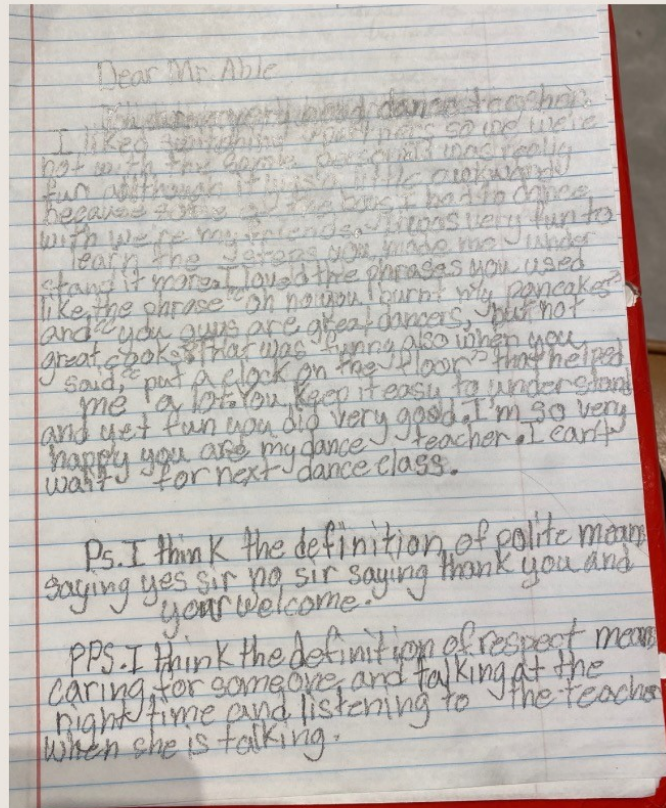 Dear Mr. Able
very good dance teacher.
I liked switching partners so we we're
not with the same person it was really
fun although it was a little awkward
because some of the boys I had to dance
with we're my friends. It was very fun to
learn the steps you made me under
stand it more. I loved the phrases you used
like, the phrase "oh no you burnt my pancakes"
and, "you guys are great dancers, but not
great cooks" that was funny also when you
said, "put a clock on the floor" that helped
me a lot. You keep it easy to understand
and yet fun you did very good. I'm so very
happy you are my dance teacher. I can't
wait for next dance class.
Ps. I think the definition of polite means
saying yes sir no sir saying thank you and
your welcome.
PPS. I think the definition of respect means
caring for someone and talking at the
right time and listening to the teacher
when she is talking.